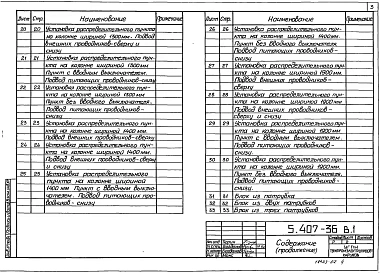 3
Лист Стр. Наименование Примечание
20 20 Установка распределительного пункта
на колонне шириной 1300мм. Подвод
внешних проводников-сверху и
снизу
21 21 Установка распределительного пун-
кта на колонне шириной 1300мм.
Пункт с вводным выключателем.
Подвод питающих проводников-снизу
22 22 Установка распределительного пун-
кта на колонне шириной 1300мм
Пункт без вводного выключателя.
Подвод питающих проводников-
снизу
23 23 Установка распределительного пун-
кта на колонне шириной 1400 мм.
Подвод внешних проводников-сверху
24 24 Установка распределительного пун-
кта на колонне шириной 1400мм.
Подвод внешних проводников-сверху
и снизу
25 25 Установка распределительного
пункта на колонне шириной
1400 мм Пункт с вводным выклю-
чателем. Подвод питающих про-
водников-снизу
Лист Стр. Наименование Примечание
26 26 Установка распределительного пун-
кта на колонне шириной 1400мм
Пункт без вводного выключателя.
Подвод питающих проводников-
снизу
27 27 Установка распределительного пун-
кта на колонне шириной 1900мм.
Подвод внешних проводников-
сверху
28 28 Установка распределительного пун-
кта на колонне шириной 1900мм
Подвод внешних проводников-
сверху и снизу
29 29 Установка распределительного пун-
кта на колонне шириной 1900мм
Пункт с вводным выключателем.
Подвод питающих проводников-
снизу
30 30 Установка распределительного пун-
кта на колонне шириной 1900мм.
Пункт без вводного выключателя.
Подвод питающих проводников-
снизу.
31 31 Блок из патрубка
32 32 Блок из двух патрубков
33 33 Блок из трех патрубков
5.407-36 В.1
Содержание
(продолжение)